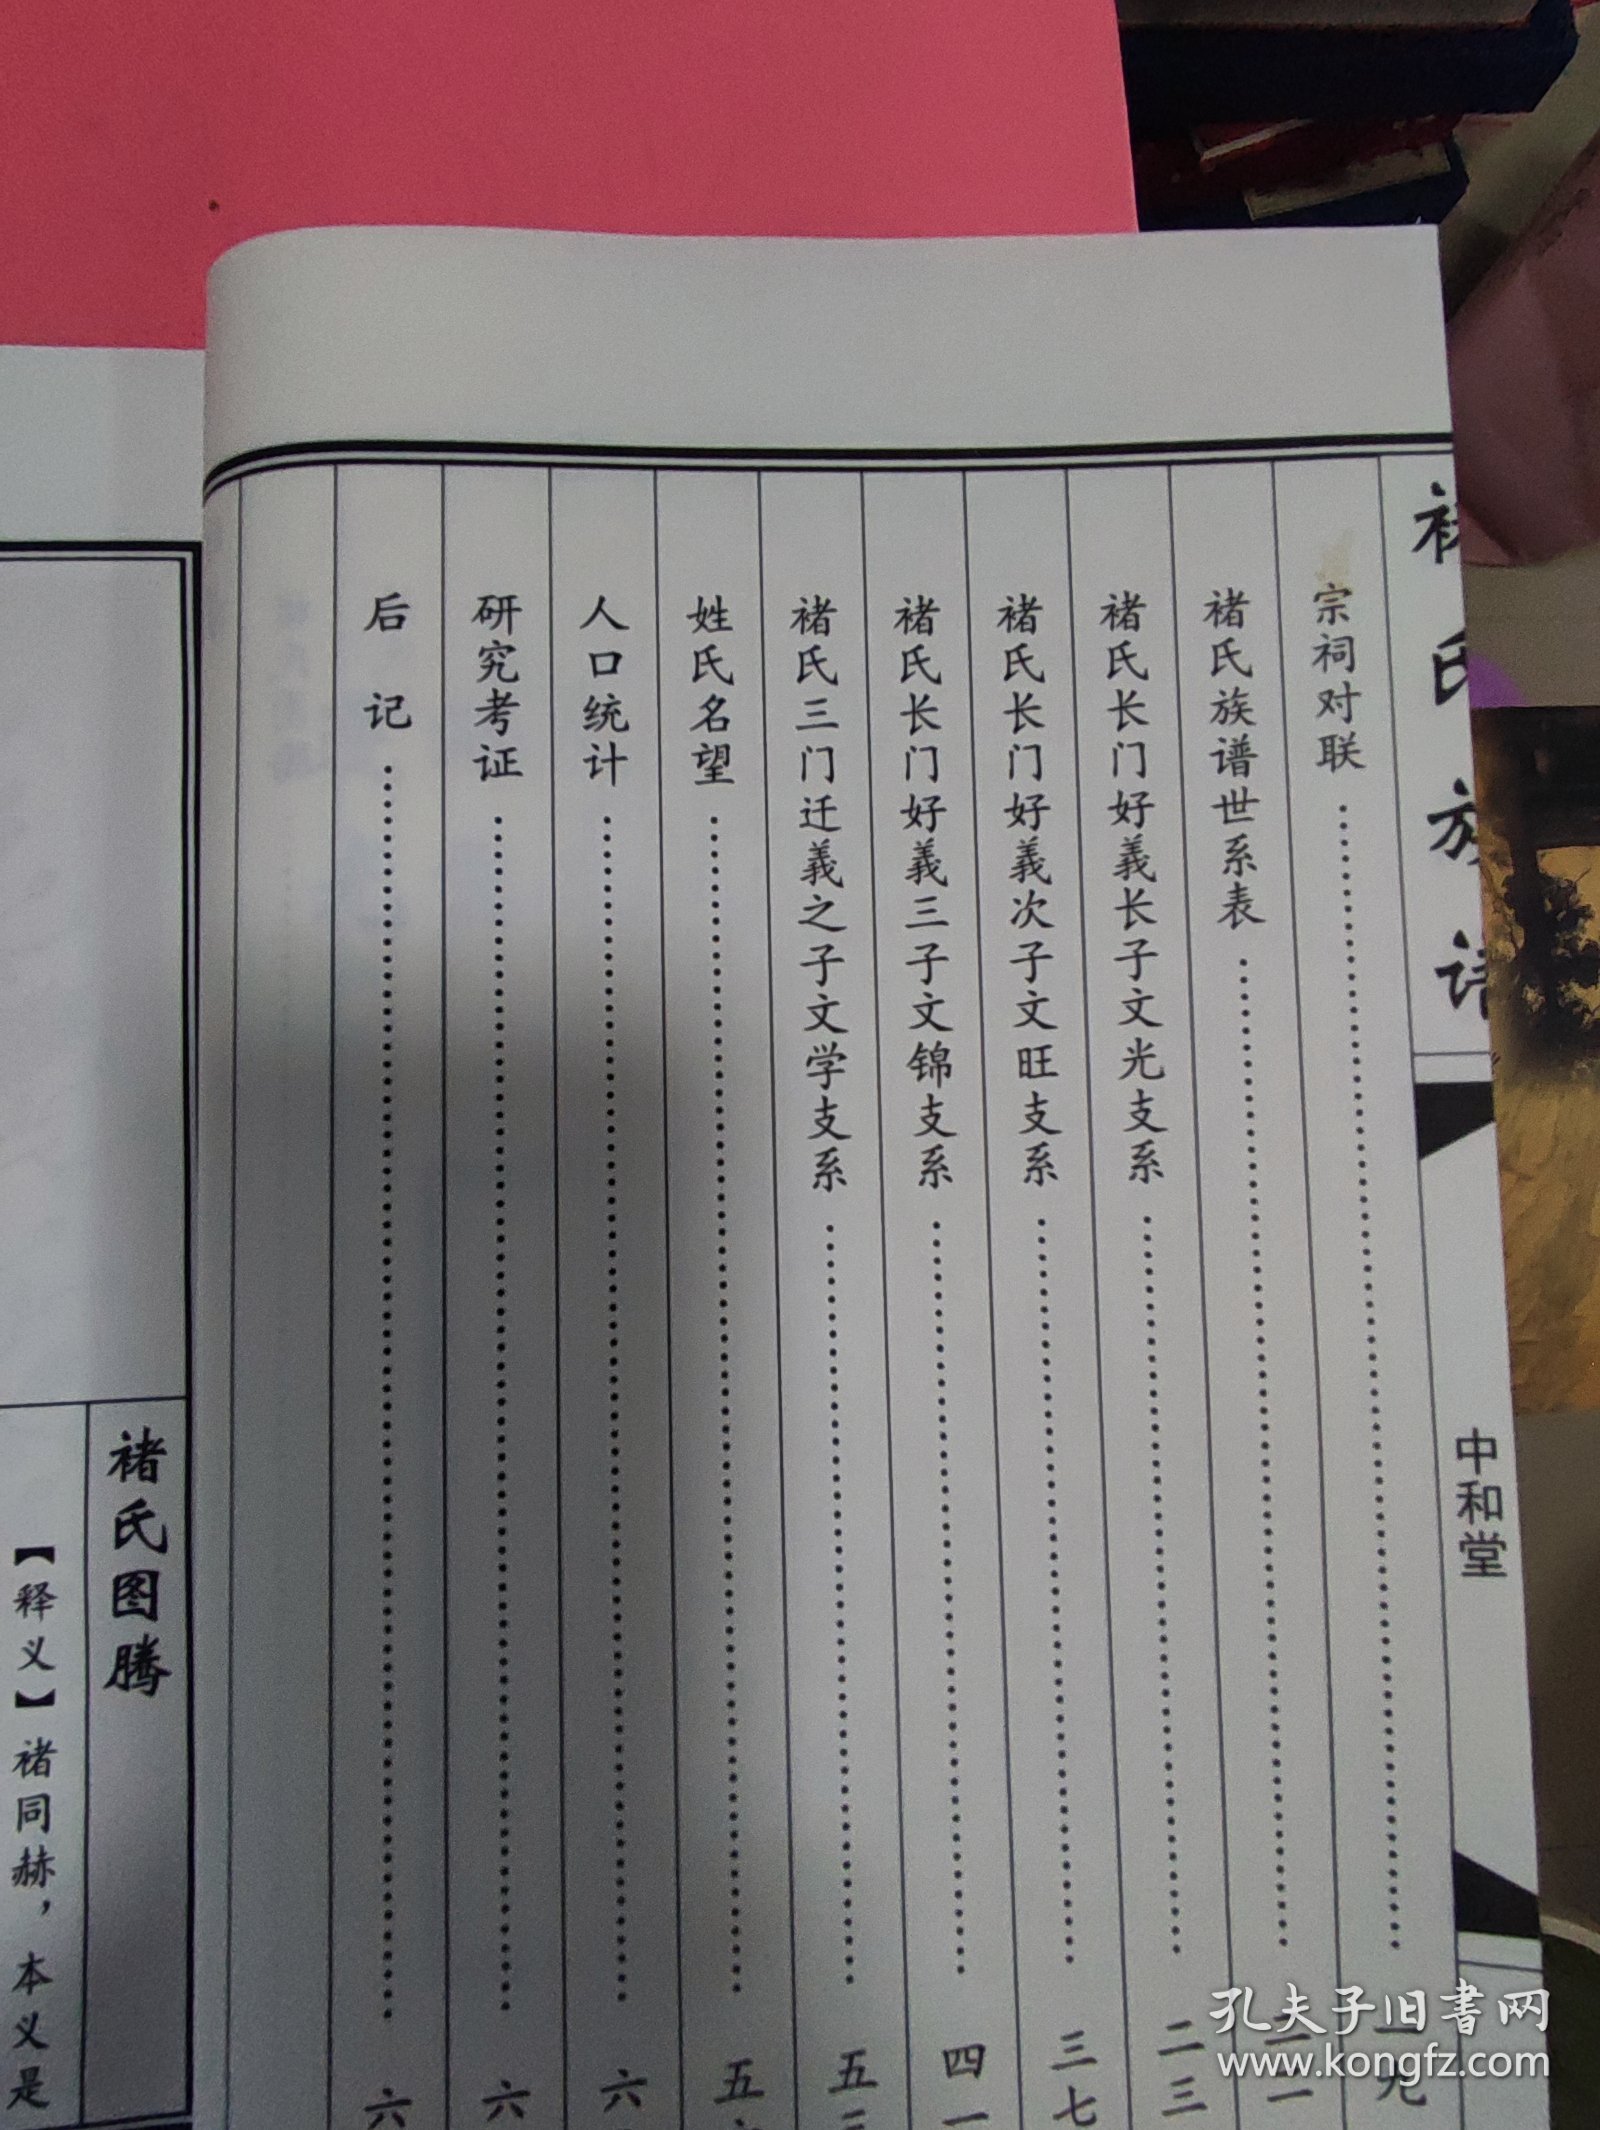 褚氏族谱
中和堂
宗祠对联……一九
褚氏族谱世系表……二二
褚氏长门好義长子文光支系……二三
褚氏长门好義次子文旺支系……三七
褚氏长门好義三子文锦支系……四一
褚氏三门迁義之子文学支系……五
姓氏名望……五
人口统计……六
研究考证……六
后记……六
褚氏图腾
【释义】褚同赫，本义是
孔夫子旧书网
www.kongfz.com